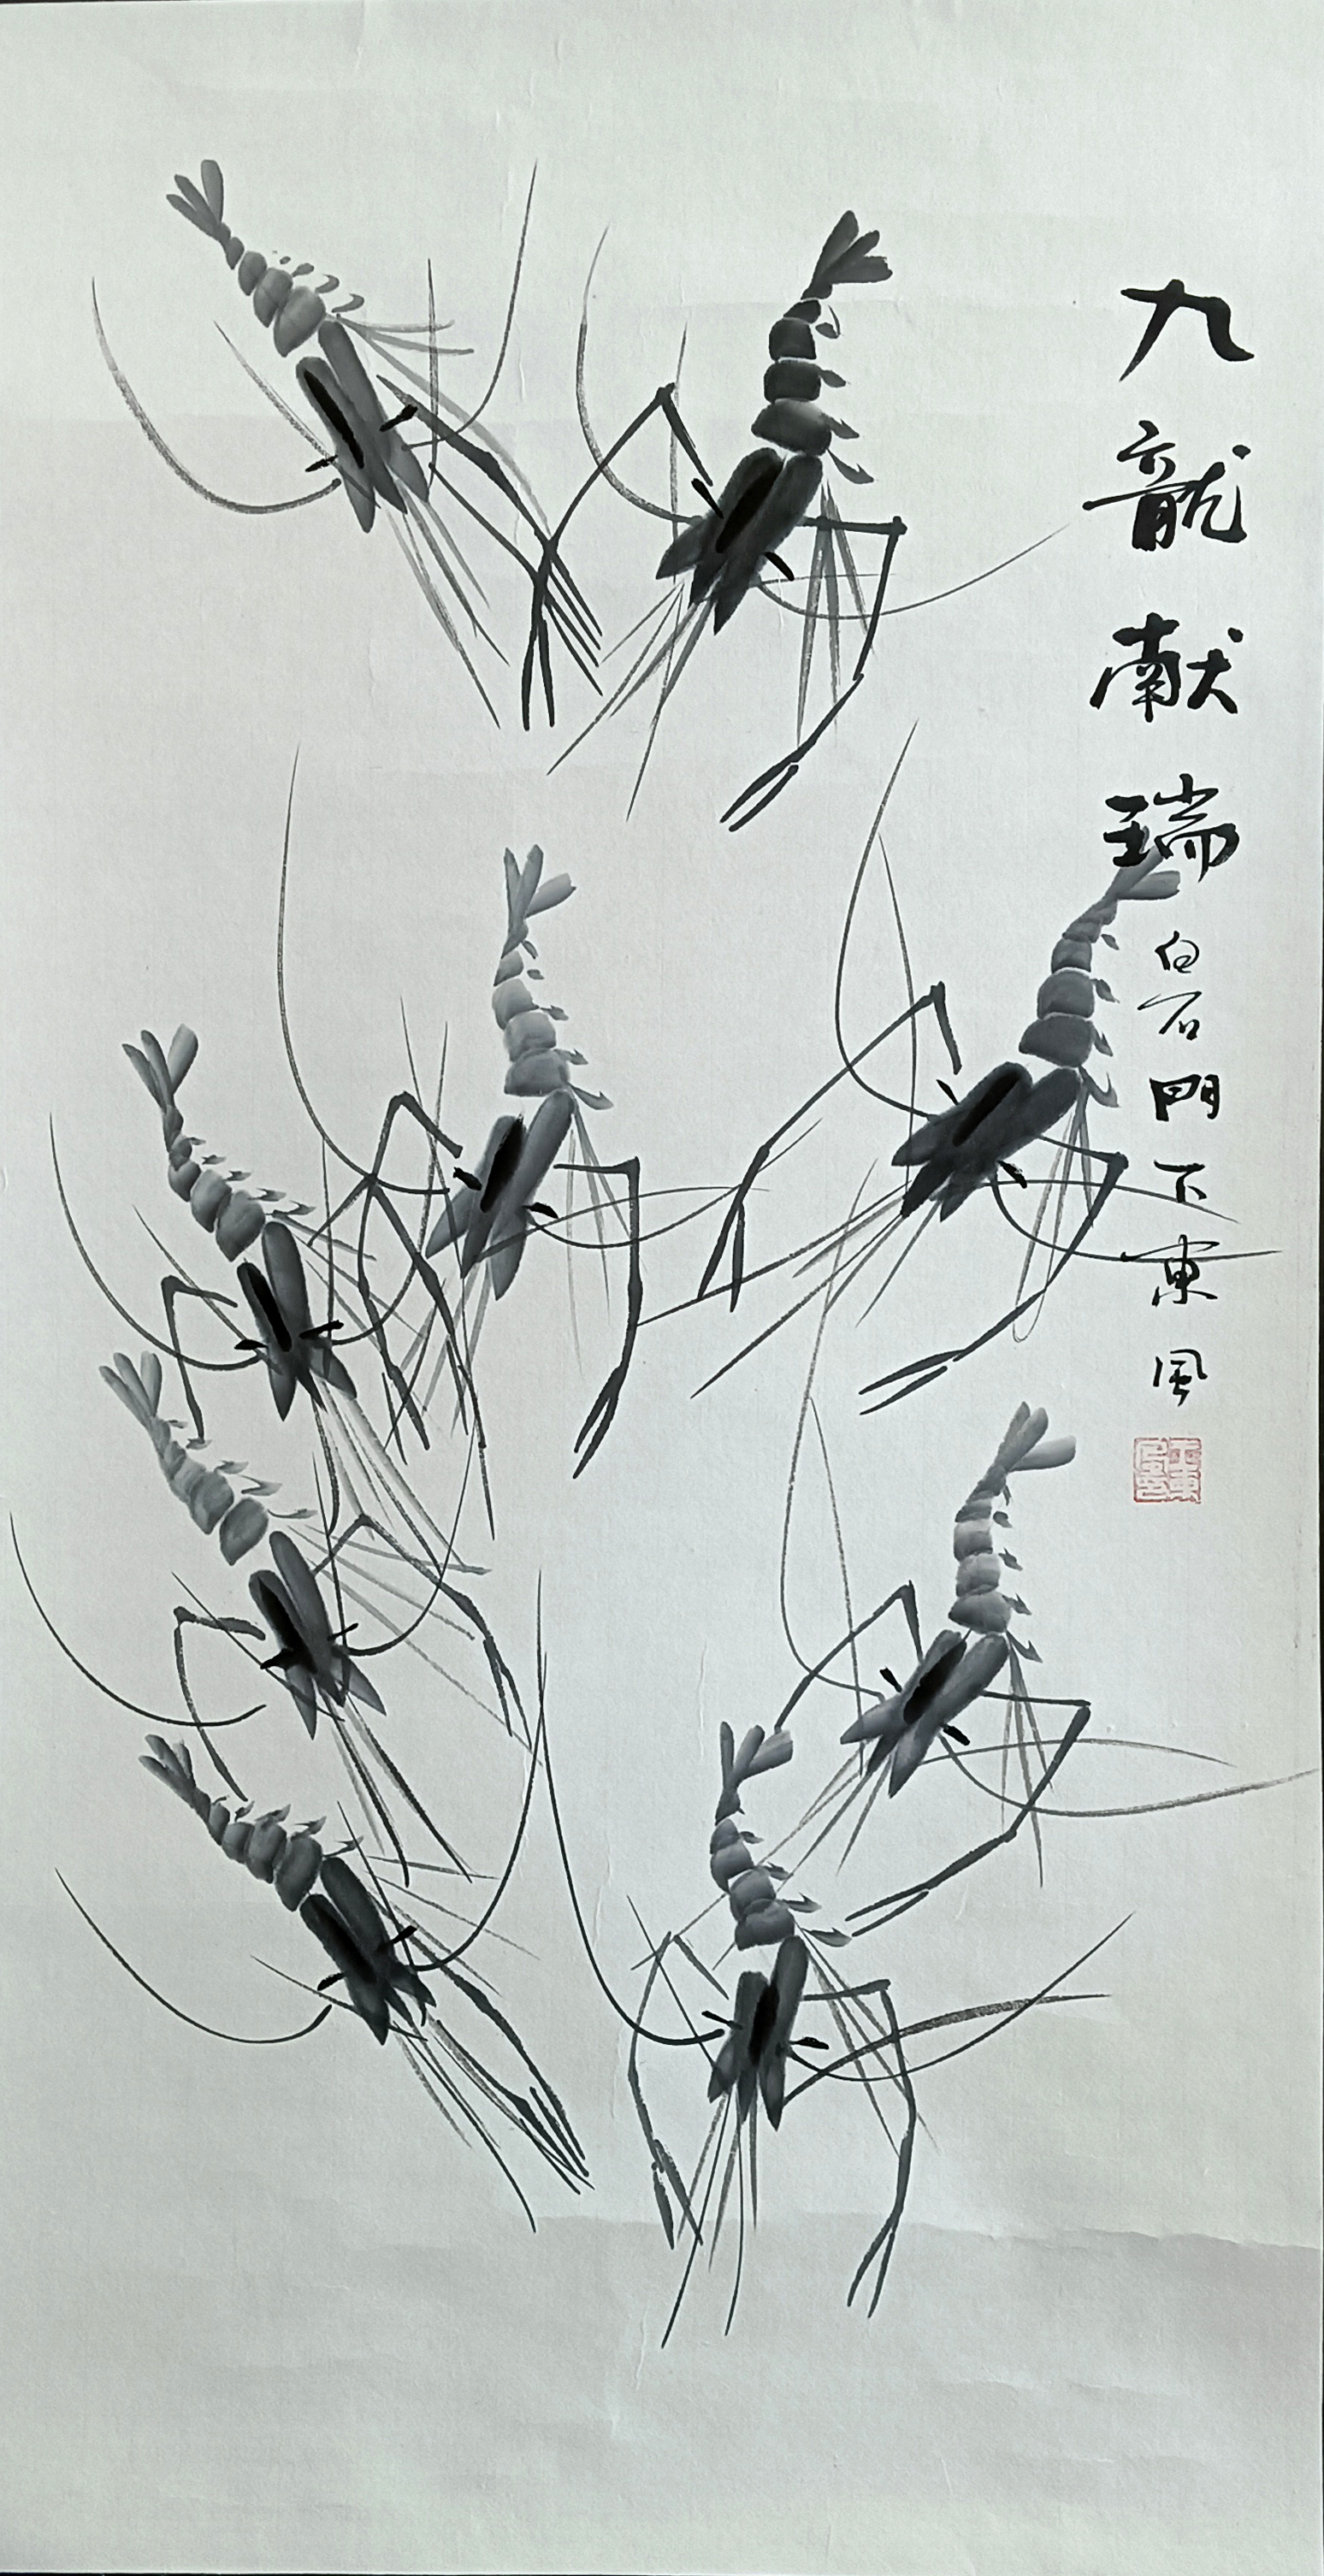 九龍献瑞
白石門下東風